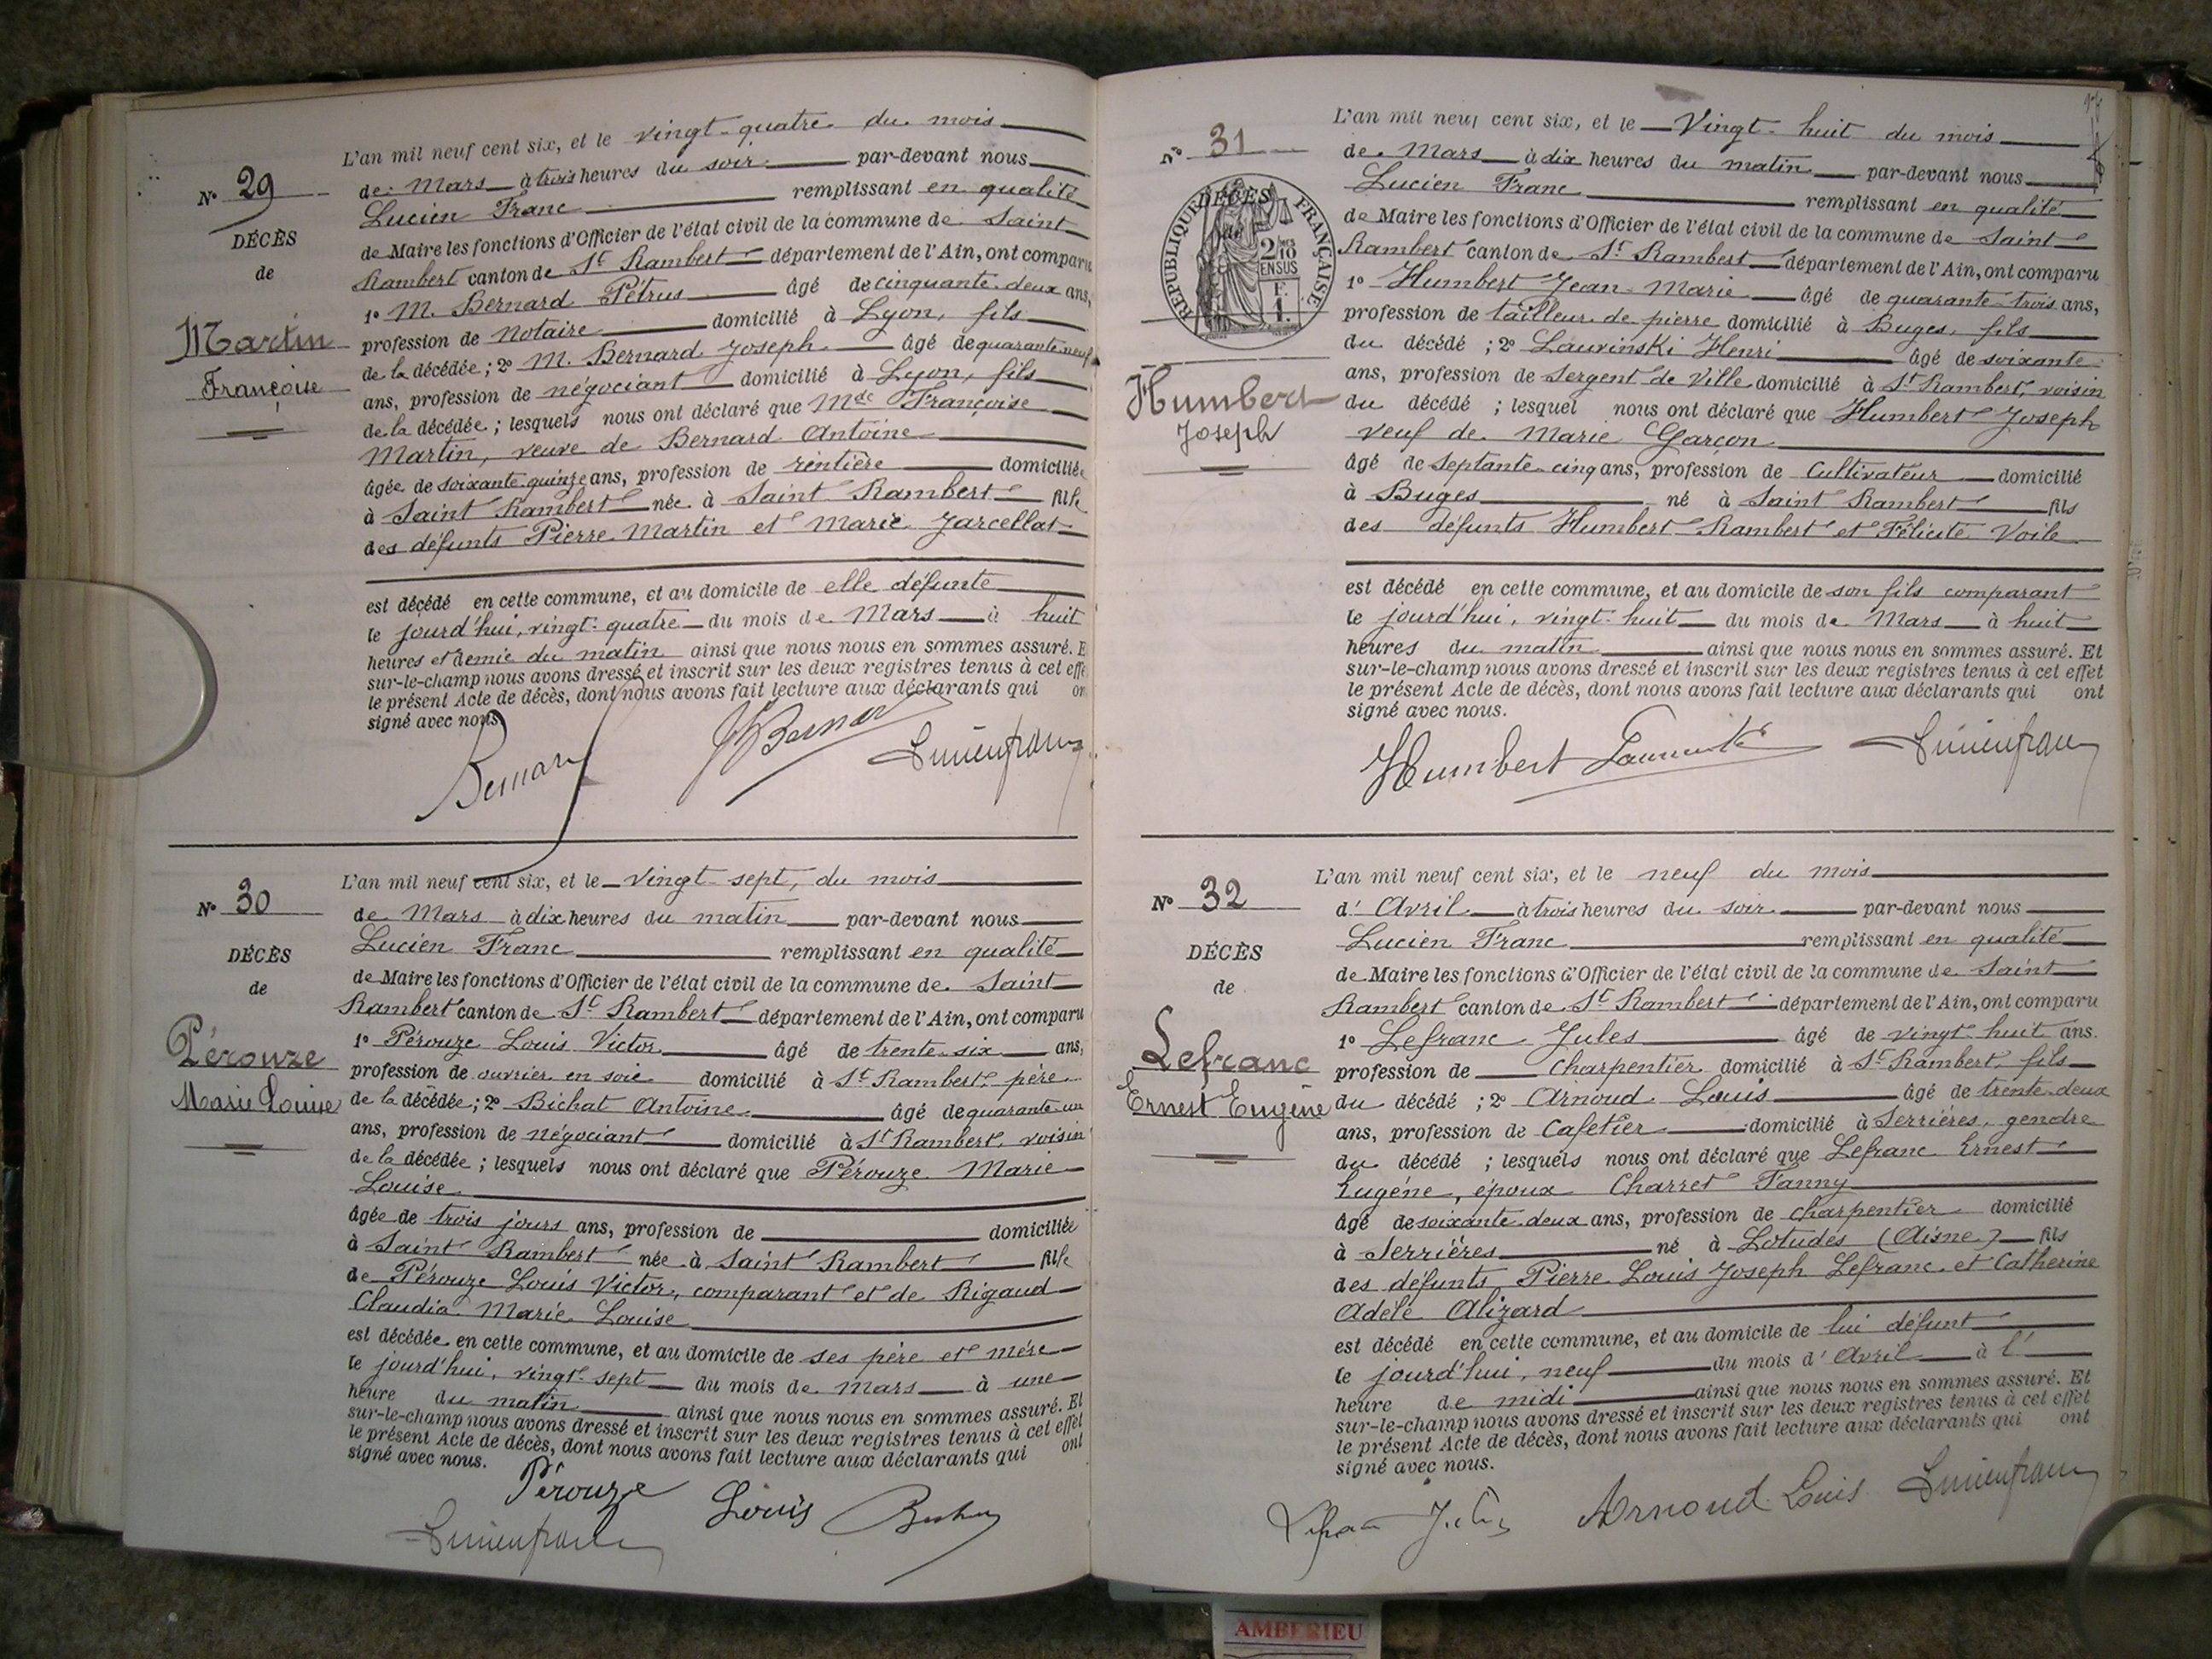 N° 29
DÉCÈS
de
Martin
Françoise
L'an mil neuf cent six, et le vingt-quatre du mois
de Mars à trois heures du soir par-devant nous
Lucien Franc remplissant en qualité
de Maire les fonctions d'Officier de l'état civil de la commune de Saint
Rambert canton de St Rambert département de l'Ain, ont comparu
1° M. Bernard Pétrus âgé de cinquante-deux ans,
profession de notaire domicilié à Lyon, fils
de la décédée ; 2° M. Bernard Joseph âgé de quarante-neuf
ans, profession de négociant domicilié à Lyon, fils
de la décédée ; lesquels nous ont déclaré que Mde Françoise
Martin, veuve de Bernard Antoine
âgée de soixante-quinze ans, profession de rentière domiciliée
à Saint Rambert née à Saint Rambert fille
des défunts Pierre Martin et Marie Jarcellat
est décédé en cette commune, et au domicile de elle défunte
le jourd'hui, vingt-quatre du mois de Mars à huit
heures et demie du matin ainsi que nous nous en sommes assuré. E
sur-le-champ nous avons dressé et inscrit sur les deux registres tenus à cet effe
le présent Acte de décès, dont nous avons fait lecture aux déclarants qui on
signé avec nous
Bernard
Lucien franc
N° 30
DÉCÈS
de
Pérouze
Marie Louise
L'an mil neuf cent six, et le vingt-sept, du mois
de Mars à dix heures du matin par-devant nous
Lucien Franc remplissant en qualité
de Maire les fonctions d'Officier de l'état civil de la commune de Saint
Rambert canton de St Rambert département de l'Ain, ont comparu
1° Pérouze Louis Victor âgé de trente-six ans,
profession de ouvrier en soie domicilié à St Rambert, père
de la décédée ; 2° Bichat Antoine âgé de quarante-un
ans, profession de négociant domicilié à St Rambert, voisin
de la décédée ; lesquels nous ont déclaré que Pérouze Marie
Louise
âgée de trois jours ans, profession de domiciliée
à Saint Rambert née à Saint Rambert fille
de Pérouze Louis Victor, comparant et de Rigaud
Claudia Marie Louise
est décédée en cette commune, et au domicile de ses père et mère
le jourd'hui, vingt-sept du mois de mars à une
heure du matin ainsi que nous nous en sommes assuré. Et
sur-le-champ nous avons dressé et inscrit sur les deux registres tenus à cet effet
le présent Acte de décès, dont nous avons fait lecture aux déclarants qui ont
signé avec nous.
Pérouze Louis
Lucien franc
N° 31
DÉCÈS
de
RÉPUBLIQUE FRANÇAISE
2/10
EN SUS
F.
1.
Humbert
Joseph
L'an mil neuf cent six, et le Vingt-huit du mois
de Mars à dix heures du matin par-devant nous
Lucien Franc remplissant en qualité
de Maire les fonctions d'Officier de l'état civil de la commune de Saint
Rambert canton de St Rambert département de l'Ain, ont comparu
1° Humbert Jean-Marie âgé de quarante-trois ans,
profession de tailleur de pierre domicilié à Buges, fils
du décédé ; 2° Lauvinski Henri âgé de soixante
ans, profession de Sergent de Ville domicilié à St Rambert, voisin
du décédé ; lesquel nous ont déclaré que Humbert Joseph
veuf de Marie Garcon
âgé de septante-cinq ans, profession de cultivateur domicilié
à Buges né à Saint Rambert fils
des défunts Humbert Rambert et Félicité Voile
est décédé en cette commune, et au domicile de son fils comparant
le jourd'hui, vingt-huit du mois de Mars à huit
heures du matin ainsi que nous nous en sommes assuré. Et
sur-le-champ nous avons dressé et inscrit sur les deux registres tenus à cet effet
le présent Acte de décès, dont nous avons fait lecture aux déclarants qui ont
signé avec nous.
Humbert
Lucien franc
N° 32
DÉCÈS
de
Lefranc
Ernest Eugène
L'an mil neuf cent six, et le neuf du mois
d'Avril à trois heures du soir par-devant nous
Lucien Franc remplissant en qualité
de Maire les fonctions d'Officier de l'état civil de la commune de Saint
Rambert canton de St Rambert département de l'Ain, ont comparu
1° Lefranc Jules âgé de vingt-huit ans.
profession de Charpentier domicilié à St Rambert, fils
du décédé ; 2° Arnoud Louis âgé de trente-deux
ans, profession de Cafetier domicilié à Serrières, gendre
du décédé ; lesquels nous ont déclaré que Lefranc Ernest
Eugène, époux Charret Fanny
âgé de soixante-deux ans, profession de charpentier domicilié
à Serrières né à Loludés (Aisne) fils
des défunts Pierre Louis Joseph Lefranc et Catherine
Adèle Alizard
est décédé en cette commune, et au domicile de lui défunt
le jourd'hui, neuf du mois d'Avril à l'
heure de midi ainsi que nous nous en sommes assuré. Et
sur-le-champ nous avons dressé et inscrit sur les deux registres tenus à cet effet
le présent Acte de décès, dont nous avons fait lecture aux déclarants qui ont
signé avec nous.
Arnoud Louis Lucien franc
AMBERIEU